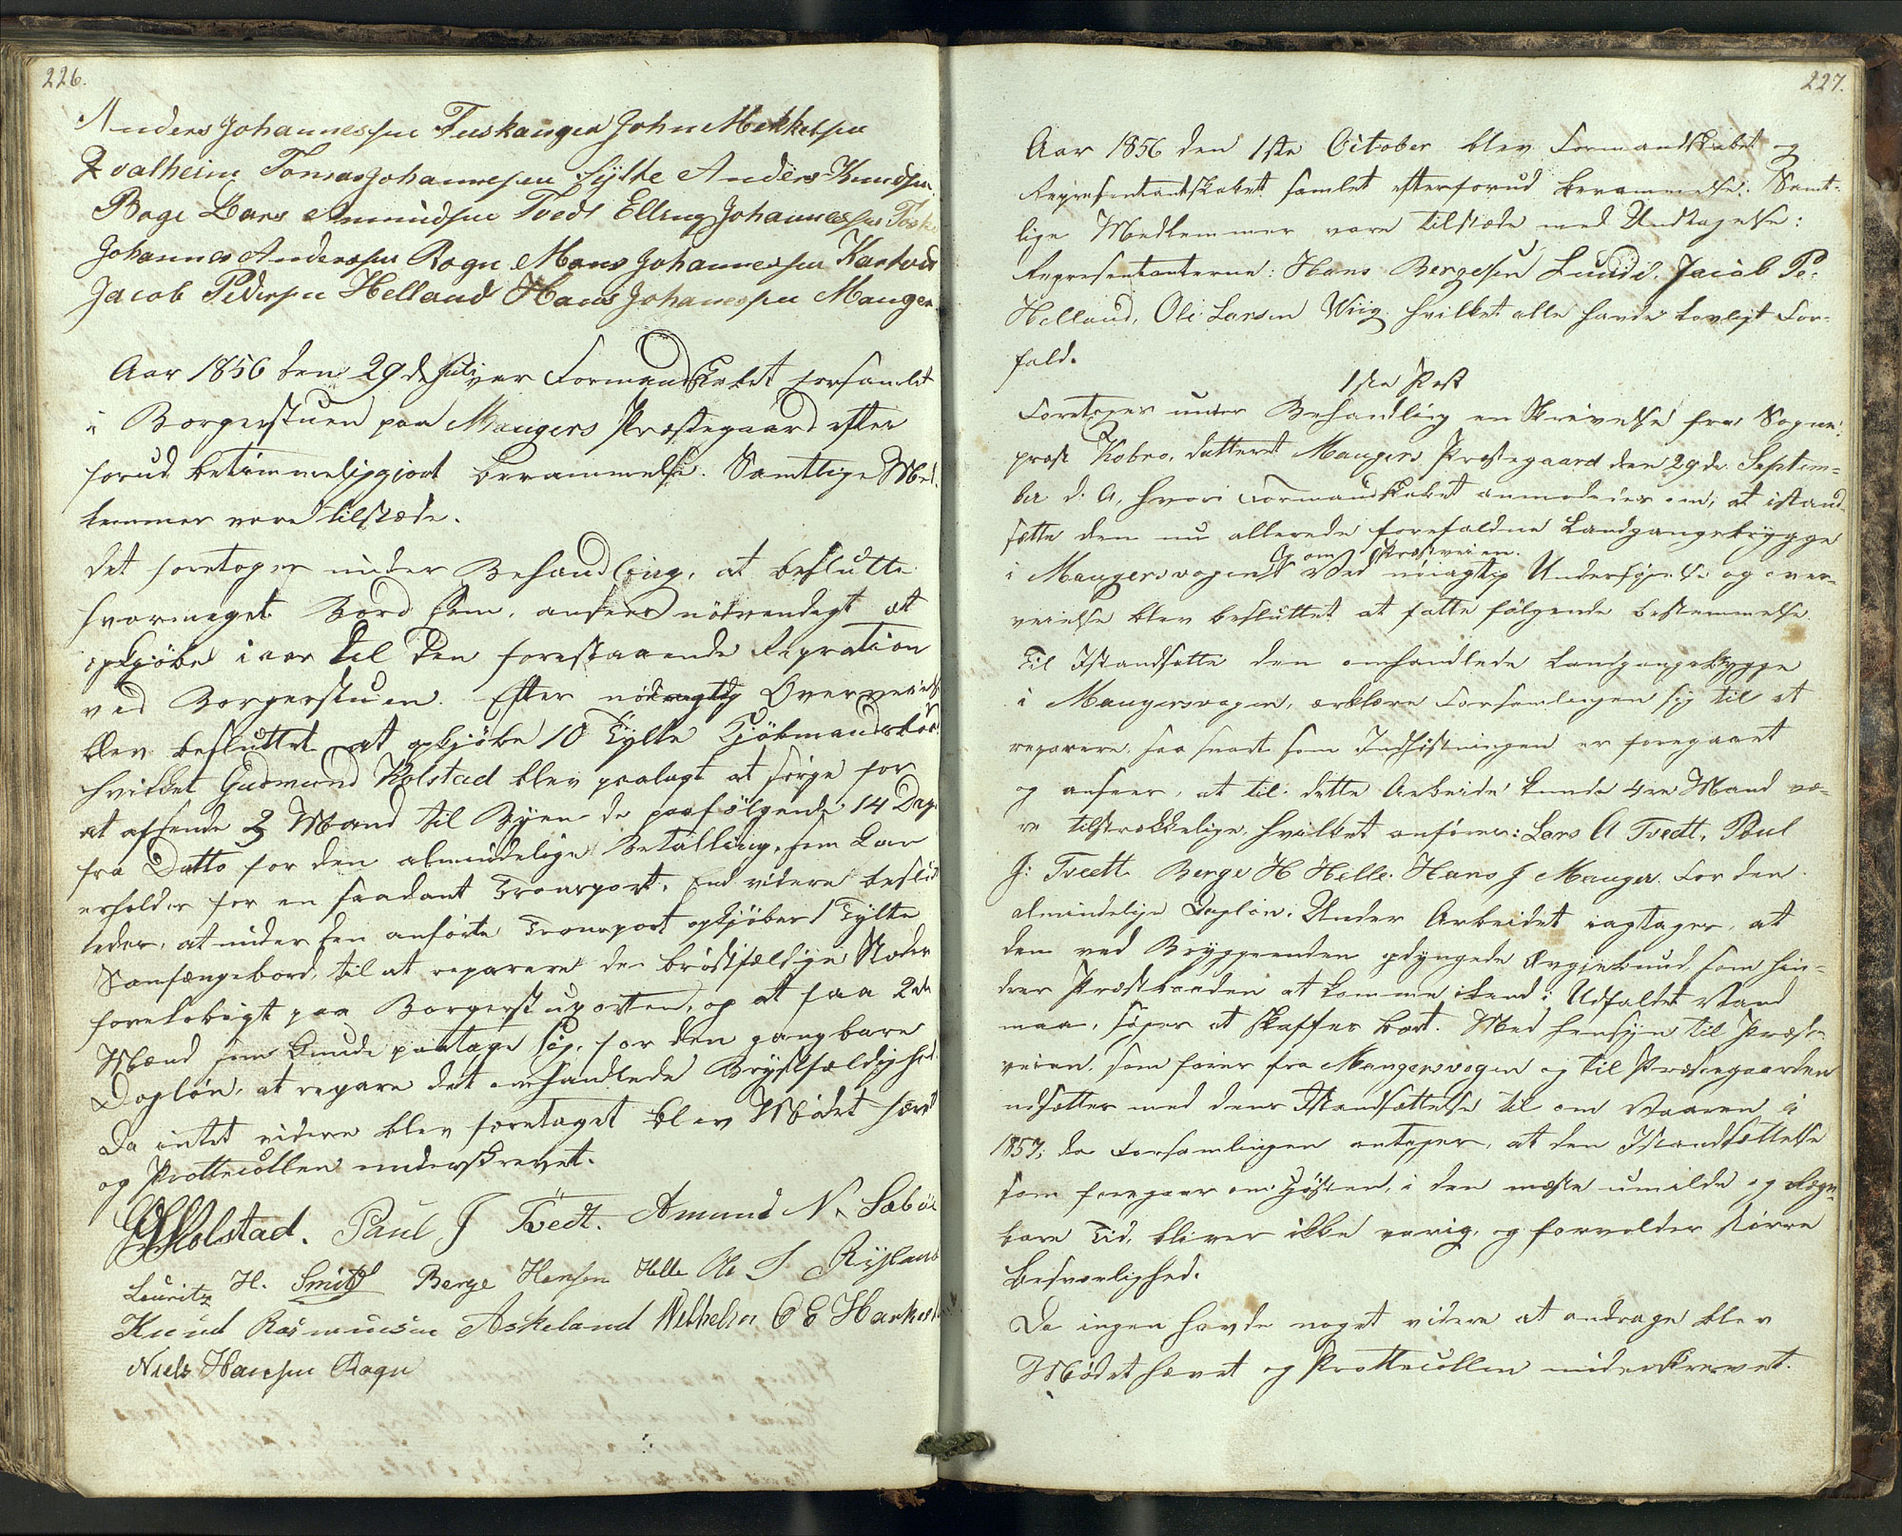 226.
Anders Johannessen Fuskanger John Mikkelsen
Qvalheim Tomas Johannesen Sylte Anders Knudsen
Boge Lars Amundsen Tvedt Elling Johannessen
Johannes Anderssen Rogn Mons Johannessen Kartvedt
Jacob Pedersen Helland Hans Johannessen Manger
Aar 1856 den 29de Juli var Formandskabet forsamlet
i Borgerstuen paa Mangers Præstegaard efter
forud betimmeliggjort Berammelse. Samtlige Med-
lemmer vare tilstæde.
Det foretoges under Behandling, at beslutte
hvormeget Bord som ansees nödvendigt at
opkjöbe i aar til den forestaaende Repration
ved Borgerstuen. Efter Overveielse
blev besluttet at opkjöbe 10 Tylte Kjöbmandsbord
hvilket Gudmund Kolstad blev paalagt at sörge for
at afsende 2 Mand til Byen de paafölgende 14 Dage
fra Datto for den almindelige Betalling, som Lar
erholdes for en saadant Transport. End videre beslut-
tedes, at under den anförte Transport opkjöbes 1 Tylte
Bord, til at reparere de bröstfældige Stæder
foreløbigt paa Borgerstuporten, og at faa 2de
Mænd som kunde paatage sig, for den gangbare
Daglön, at repare det omhandlede Bröstfældighed.
Da intet videre blev foretaget blev Mödet hævet
og Prottecollen underskrevet.
Kolstad. Paul J Tvedt. Amund N. Sæböe
Louritz H. Smith Berge Hansen Helle Ole S Rysland
Knud Rasmusen Askeland Wilhelm C E
Niels Hansen Rogn
227.
Aar 1856 den 1ste October blev Formandskabet og
Representantskabet samlet efter forud Berammelse. Samt-
lige Medlemmer vare tilstæde med Undtagelse:
Representanterne: Hans Bergesen Lunde. Jacob Pe.
Helland, Ole Larsen Wiig. hvilket alle havde lovligt For-
fald.
1ste Post
Foretoges under Behandling en Skrivelse fra Sogne-
præst Kobro, datteret Mangers Præstegaard den 29de Septem-
ber d. A, hvori Formandskabet anmodedes om, at istand-
sætte den nu allerede forefaldne Landgangsbrygge
og om Præstveien.
i Mangersvaagen Ved nöiagtig Undersögelse og over-
veielse blev besluttet at fatte fölgende bestemmelse.
Til Istandsætte den omhandlede Landgangsbrygge
i Mangersvaagen, erklære Forsamlingen sig til at
reparere, saa snart som Indhöstningen er foregaaet
og anseer, at til dette Arbeide kunde 4re Mand væ-
re tilstrækkelige hvilket anföres: Lars A Tvedt, Poul
J: Tvedt. Berge H Helle. Hans J Manger. For den
almindelige Daglön. Under Arbeidet iagtages, at
den ved Bryggeenden opdyngede som hin-
drer Præstbaaden at komme iland i Udfaldet Vand
maa, söges at skaffes bort. Med hensyn til Præst-
veien, som förer fra Mangersvaagen og til Præstegaarden
udsættes med dens Istandsættelse til om Vaaren i
1857, da Forsamlingen antager, at den Istandsættelse
som foregaar om Hösten, i den mæste umilde og Regn-
bare Tid, bliver ikke varig, og forvolder större
Besværlighed.
Da ingen havde noget videre at andrage blev
Mödet hævet og Prottecollen underskrevet.